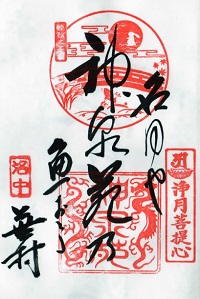 名月や
神泉苑乃
魚おどる
蕪村
洛中
浄月菩提心